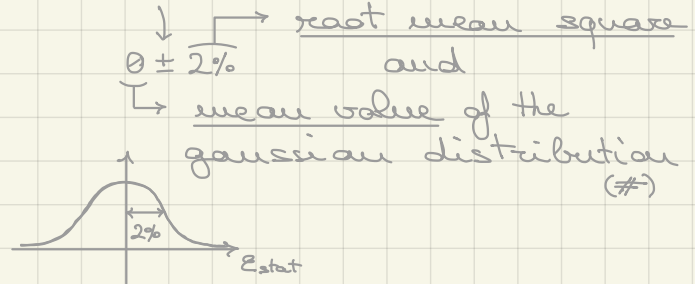 root mean square
0 ± 2% and
mean value of the
gaussian distribution
(#)
2%
Estat